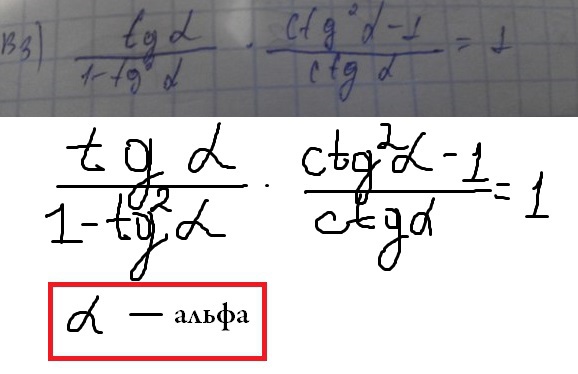 В3) tg α / 1-tg² α · ctg² α-1 / ctg α = 1
tg α / 1-tg² α · ctg² α-1 / ctg α = 1
α — альфа